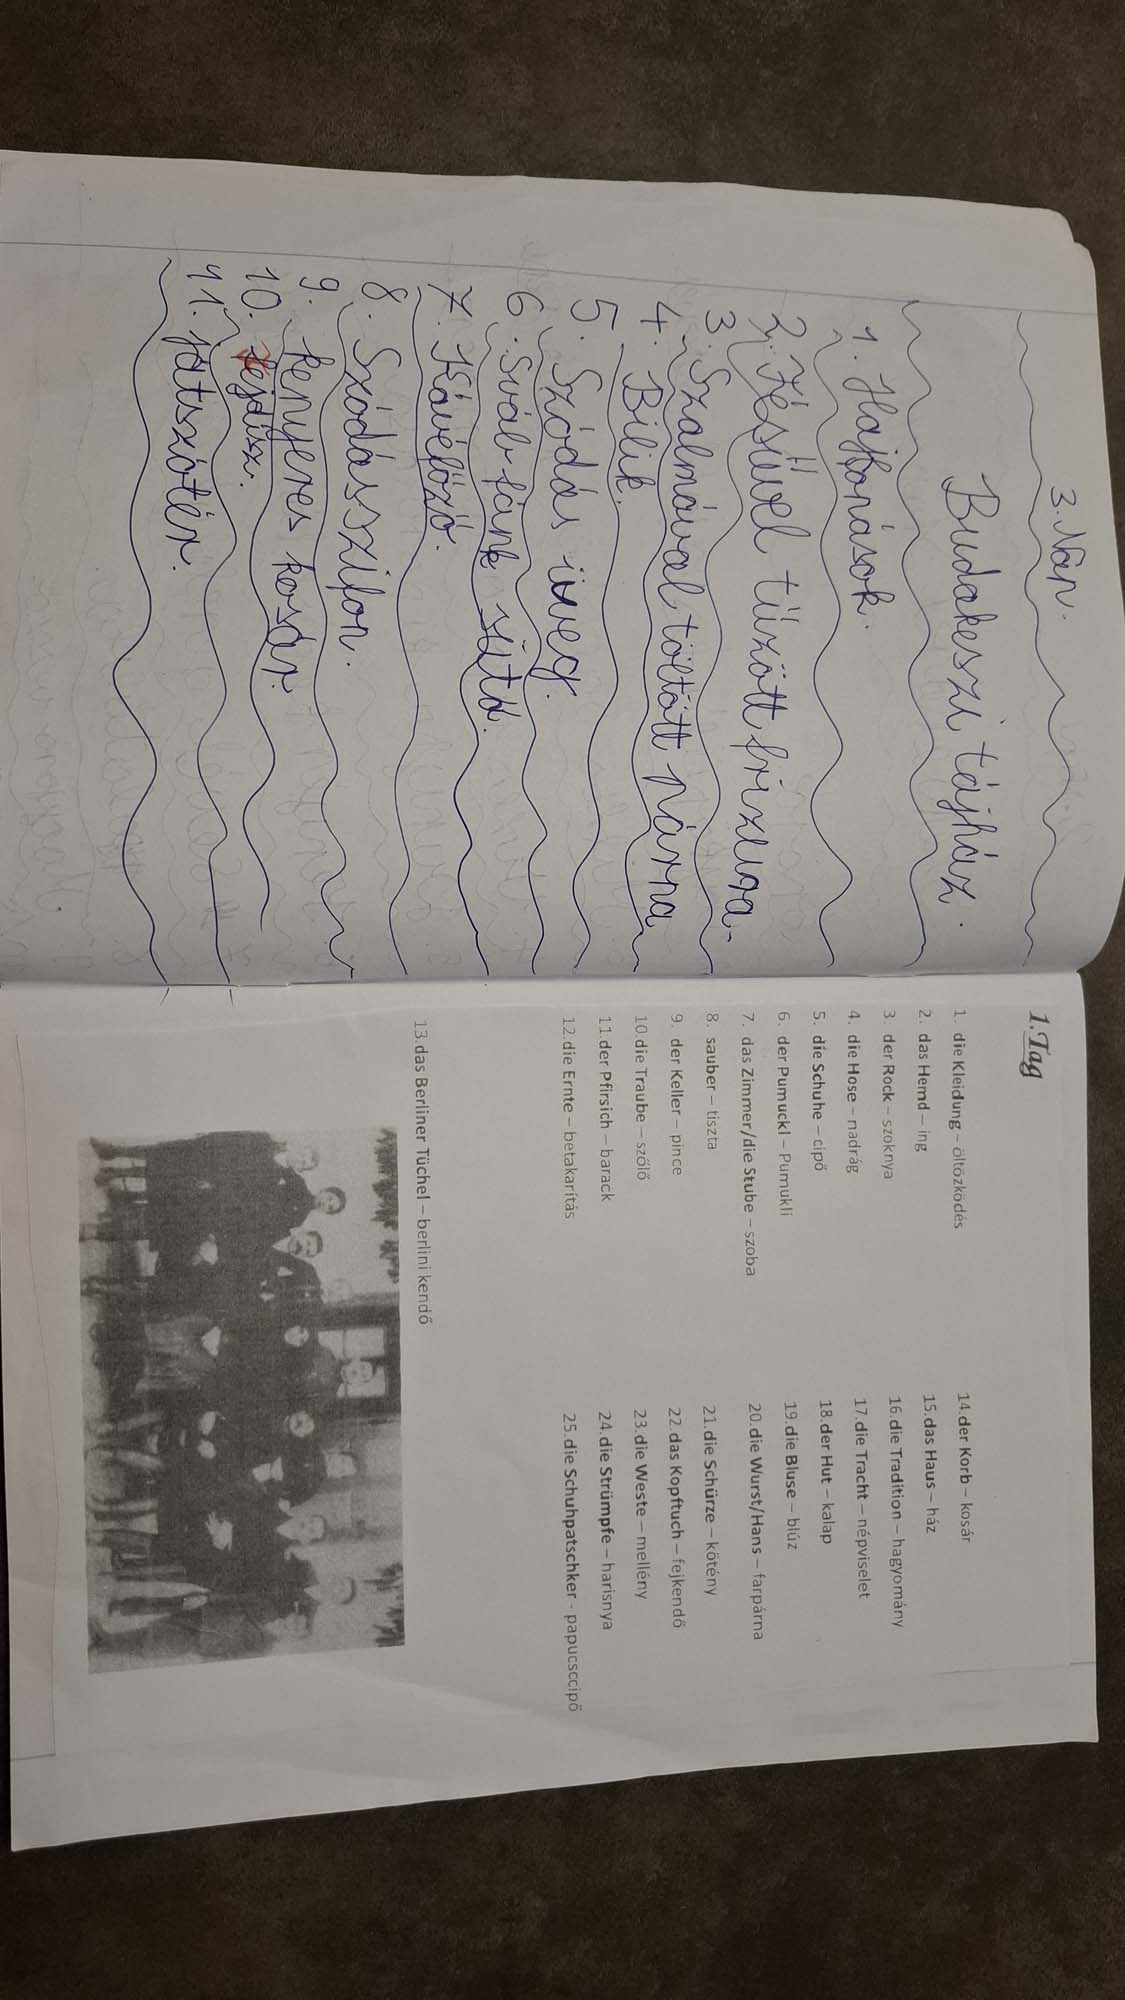 3. Nap.
Budakeszi tájház.
1. Hajfonások.
2. Fésűvel tűzött frizura.
3. Szalmával töltött párna
4. Bilik.
5. Szódás üveg.
6. Sváb fánk sütő.
7. Kávéfőző.
8. Szódásszifon.
9. kenyeres kosár.
10. fejdísz.
11. játszótér.
1. Tag
1. die Kleidung – öltözködés
2. das Hemd – ing
3. der Rock – szoknya
4. die Hose – nadrág
5. die Schuhe – cipő
6. der Pumuckl – Pumukli
7. das Zimmer/die Stube – szoba
8. sauber – tiszta
9. der Keller – pince
10.die Traube – szőlő
11.der Pfirsich – barack
12.die Ernte – betakarítás
13.das Berliner Tüchel – berlini kendő
14.der Korb – kosár
15.das Haus – ház
16.die Tradition – hagyomány
17.die Tracht – népviselet
18.der Hut – kalap
19.die Bluse – blúz
20.die Wurst/Hans – farpárna
21.die Schürze – kötény
22.das Kopftuch – fejkendő
23.die Weste – mellény
24.die Strümpfe – harisnya
25.die Schuhpatschker - papucsccipő